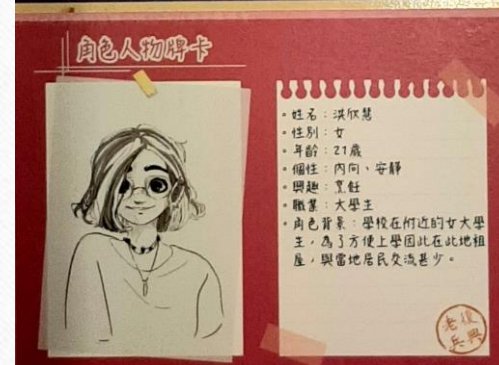 角色人物牌卡
• 姓名：洪欣慧
• 性別：女
• 年齡：21歲
• 個性：內向、安靜
• 興趣：烹飪
• 職業：大學生
• 角色背景：學校在附近的女大學
生，為了方便上學因此在此地租
屋，與當地居民交流甚少。
老復
兵興